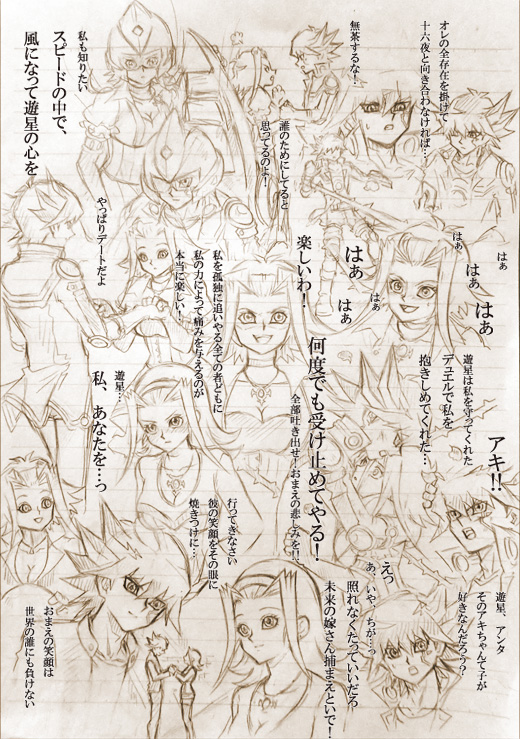 オレの全存在を掛けて
十六夜と向き合わなければ…
無茶するな！
誰のためにしてると
思ってるのよ！
私も知りたい
スピードの中で、
風になって遊星の心を
はぁ
はぁ
はぁ
はぁ
はぁ
はぁ
はぁ
楽しいわ！
私を孤独に追いやる全ての者どもに
私の力によって痛みを与えるのが
本当に楽しい！
やっぱりデートだよ
遊星は私を守ってくれた
デュエルで私を
抱きしめてくれた…
アキ!!
何度でも受け止めてやる！
全部吐き出せ！おまえの悲しみを!!
遊星…
私、あなたを…っ
行ってきなさい
彼の笑顔をその眼に
焼きつけに…
遊星、アンタ
そのアキちゃんて子が
好きなんだろう？
えっ
あ、いや、ちが…っ
照れなくたっていいだろ
未来の嫁さん捕まえといで！
おまえの笑顔は
世界の誰にも負けない